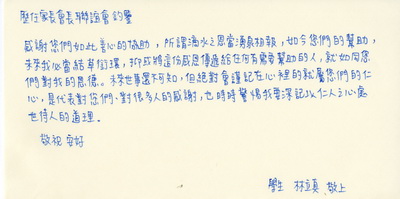 歷任家長會長聯誼會鈞鑒
感謝您們如此善心的協助，所謂滴水之恩當湧泉相報，如今您們的幫助，
未來我必當結草銜環，抑或將這份感恩傳遞給任何有需要幫助的人，就如同您
們對我的恩德。未來世事還不可知，但絕對會謹記在心裡的就屬您們的仁
心，是代表對您們、對很多人的感謝，也時時警惕我要深記以仁人之心處
世待人的道理。
敬祝 安好
學生 林 真 敬上